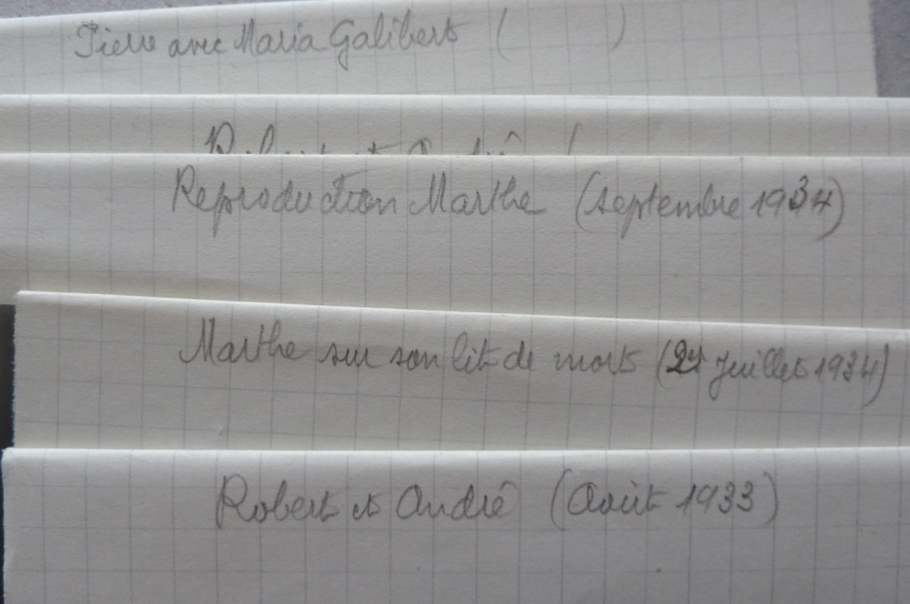 Pierre avec Maria Galibert ( )
Robert et André (
Reproduction Marthe (septembre 1934)
Marthe sur son lit de mort (24 juillet 1934)
Robert et André (Août 1933)